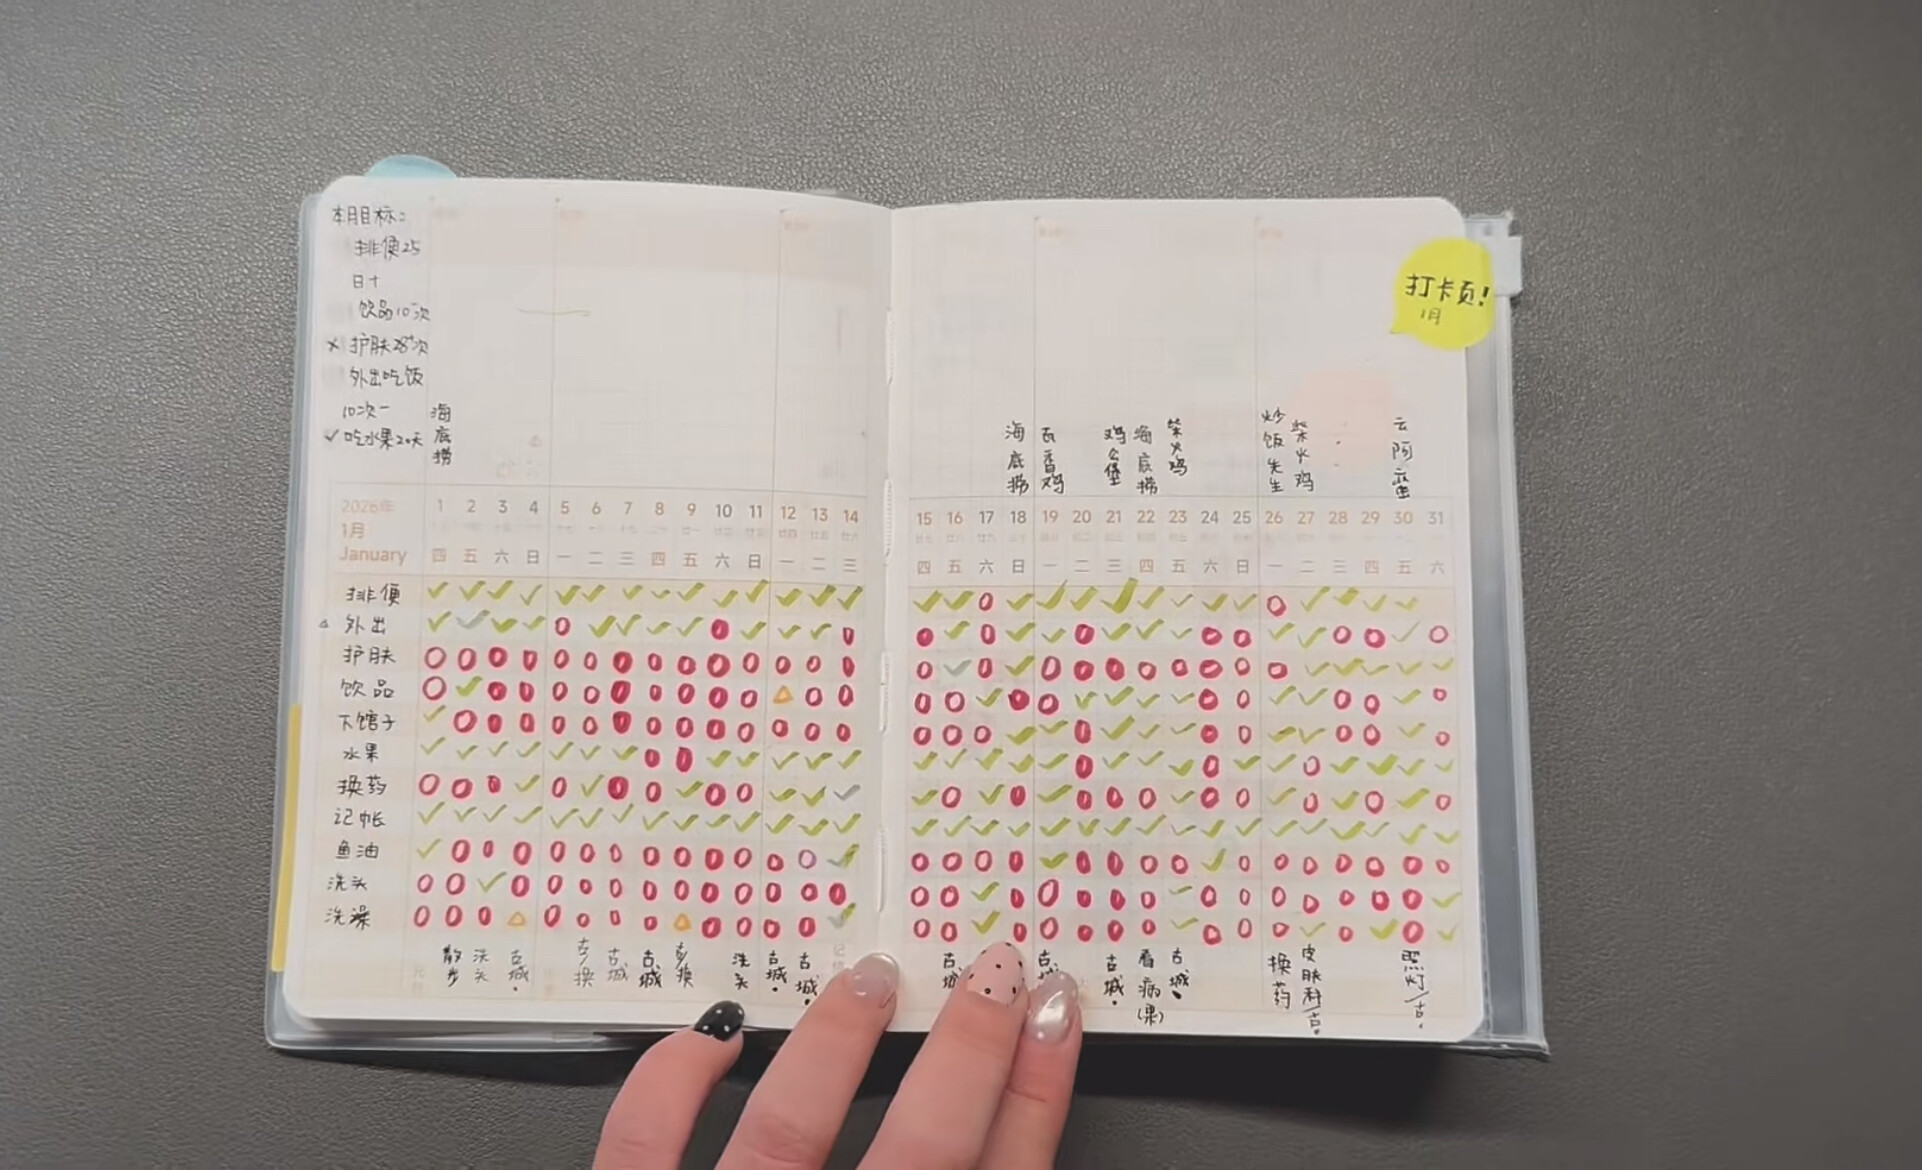 本月目标：
排便25
日+
饮品10次
× 护肤28次
外出吃饭
10次-
✓ 吃水果20天
海底捞
打卡页!
1月
海底捞
瓦香鸡
鸡公堡
海底捞
柴火鸡
炒饭先生
柴火鸡
2026年
1月
January
1 2 3 4 5 6 7 8 9 10 11 12 13 14
四 五 六 日 一 二 三 四 五 六 日 一 二 三
15 16 17 18 19 20 21 22 23 24 25 26 27 28 29 30 31
四 五 六 日 一 二 三 四 五 六 日 一 二 三 四 五 六
排便
△ 外出
护肤
饮品
下馆子
水果
换药
记帐
鱼油
洗头
洗澡
散步
洗头
古城.
古/换
古城
古城
古/换
洗头
古城.
古城.
古城
古城
古城.
看病(果)
古城.
换药
皮肤科/古.
照灯/古.